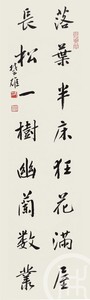 落葉半床狂花滿屋
長松一樹幽蘭數叢